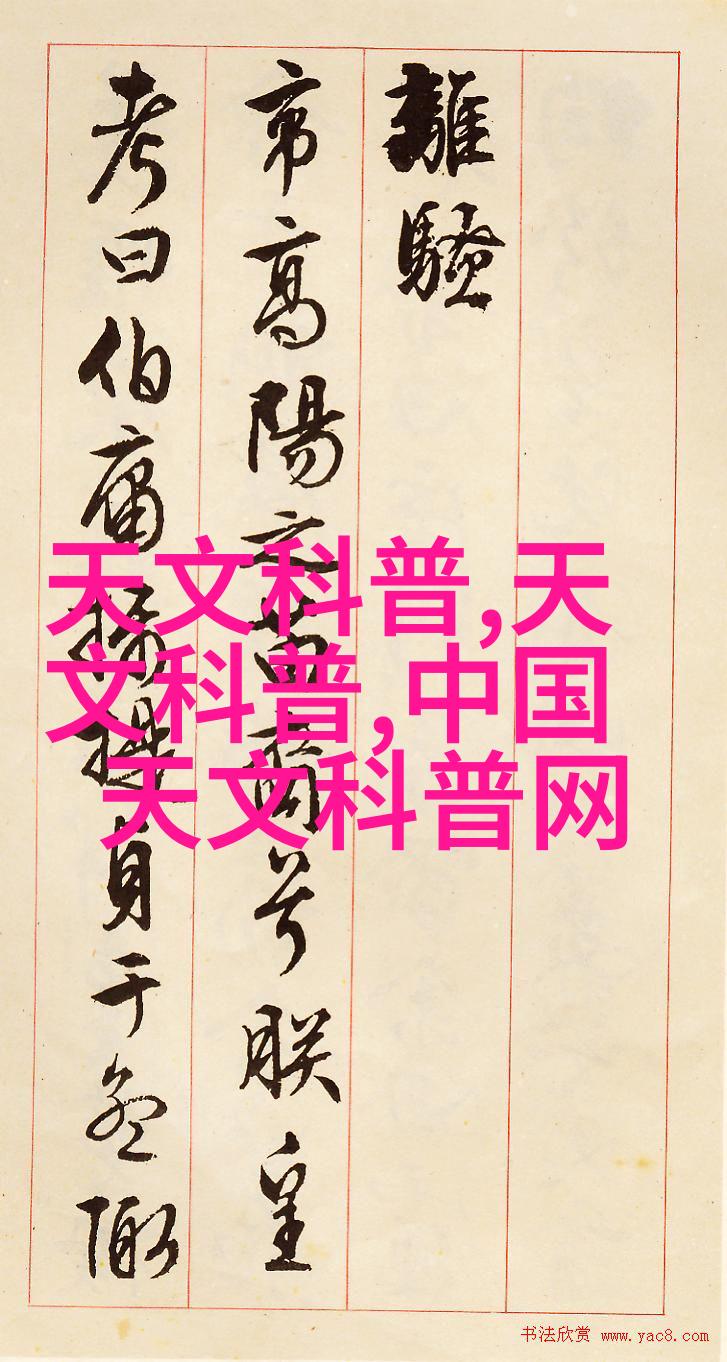 離騷
帝高陽之苗裔兮朕皇
考曰伯庸攝提貞于孟陬
天文科普,天
文科普,中国
天文科普网
书法欣赏 www.yac8.com